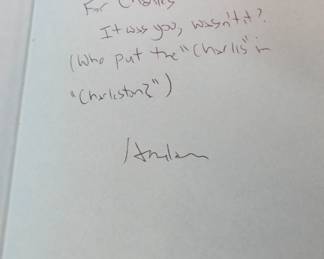 For Charles
It was you, wasn't it?
(Who put the "Charles" in
"Charleston?")